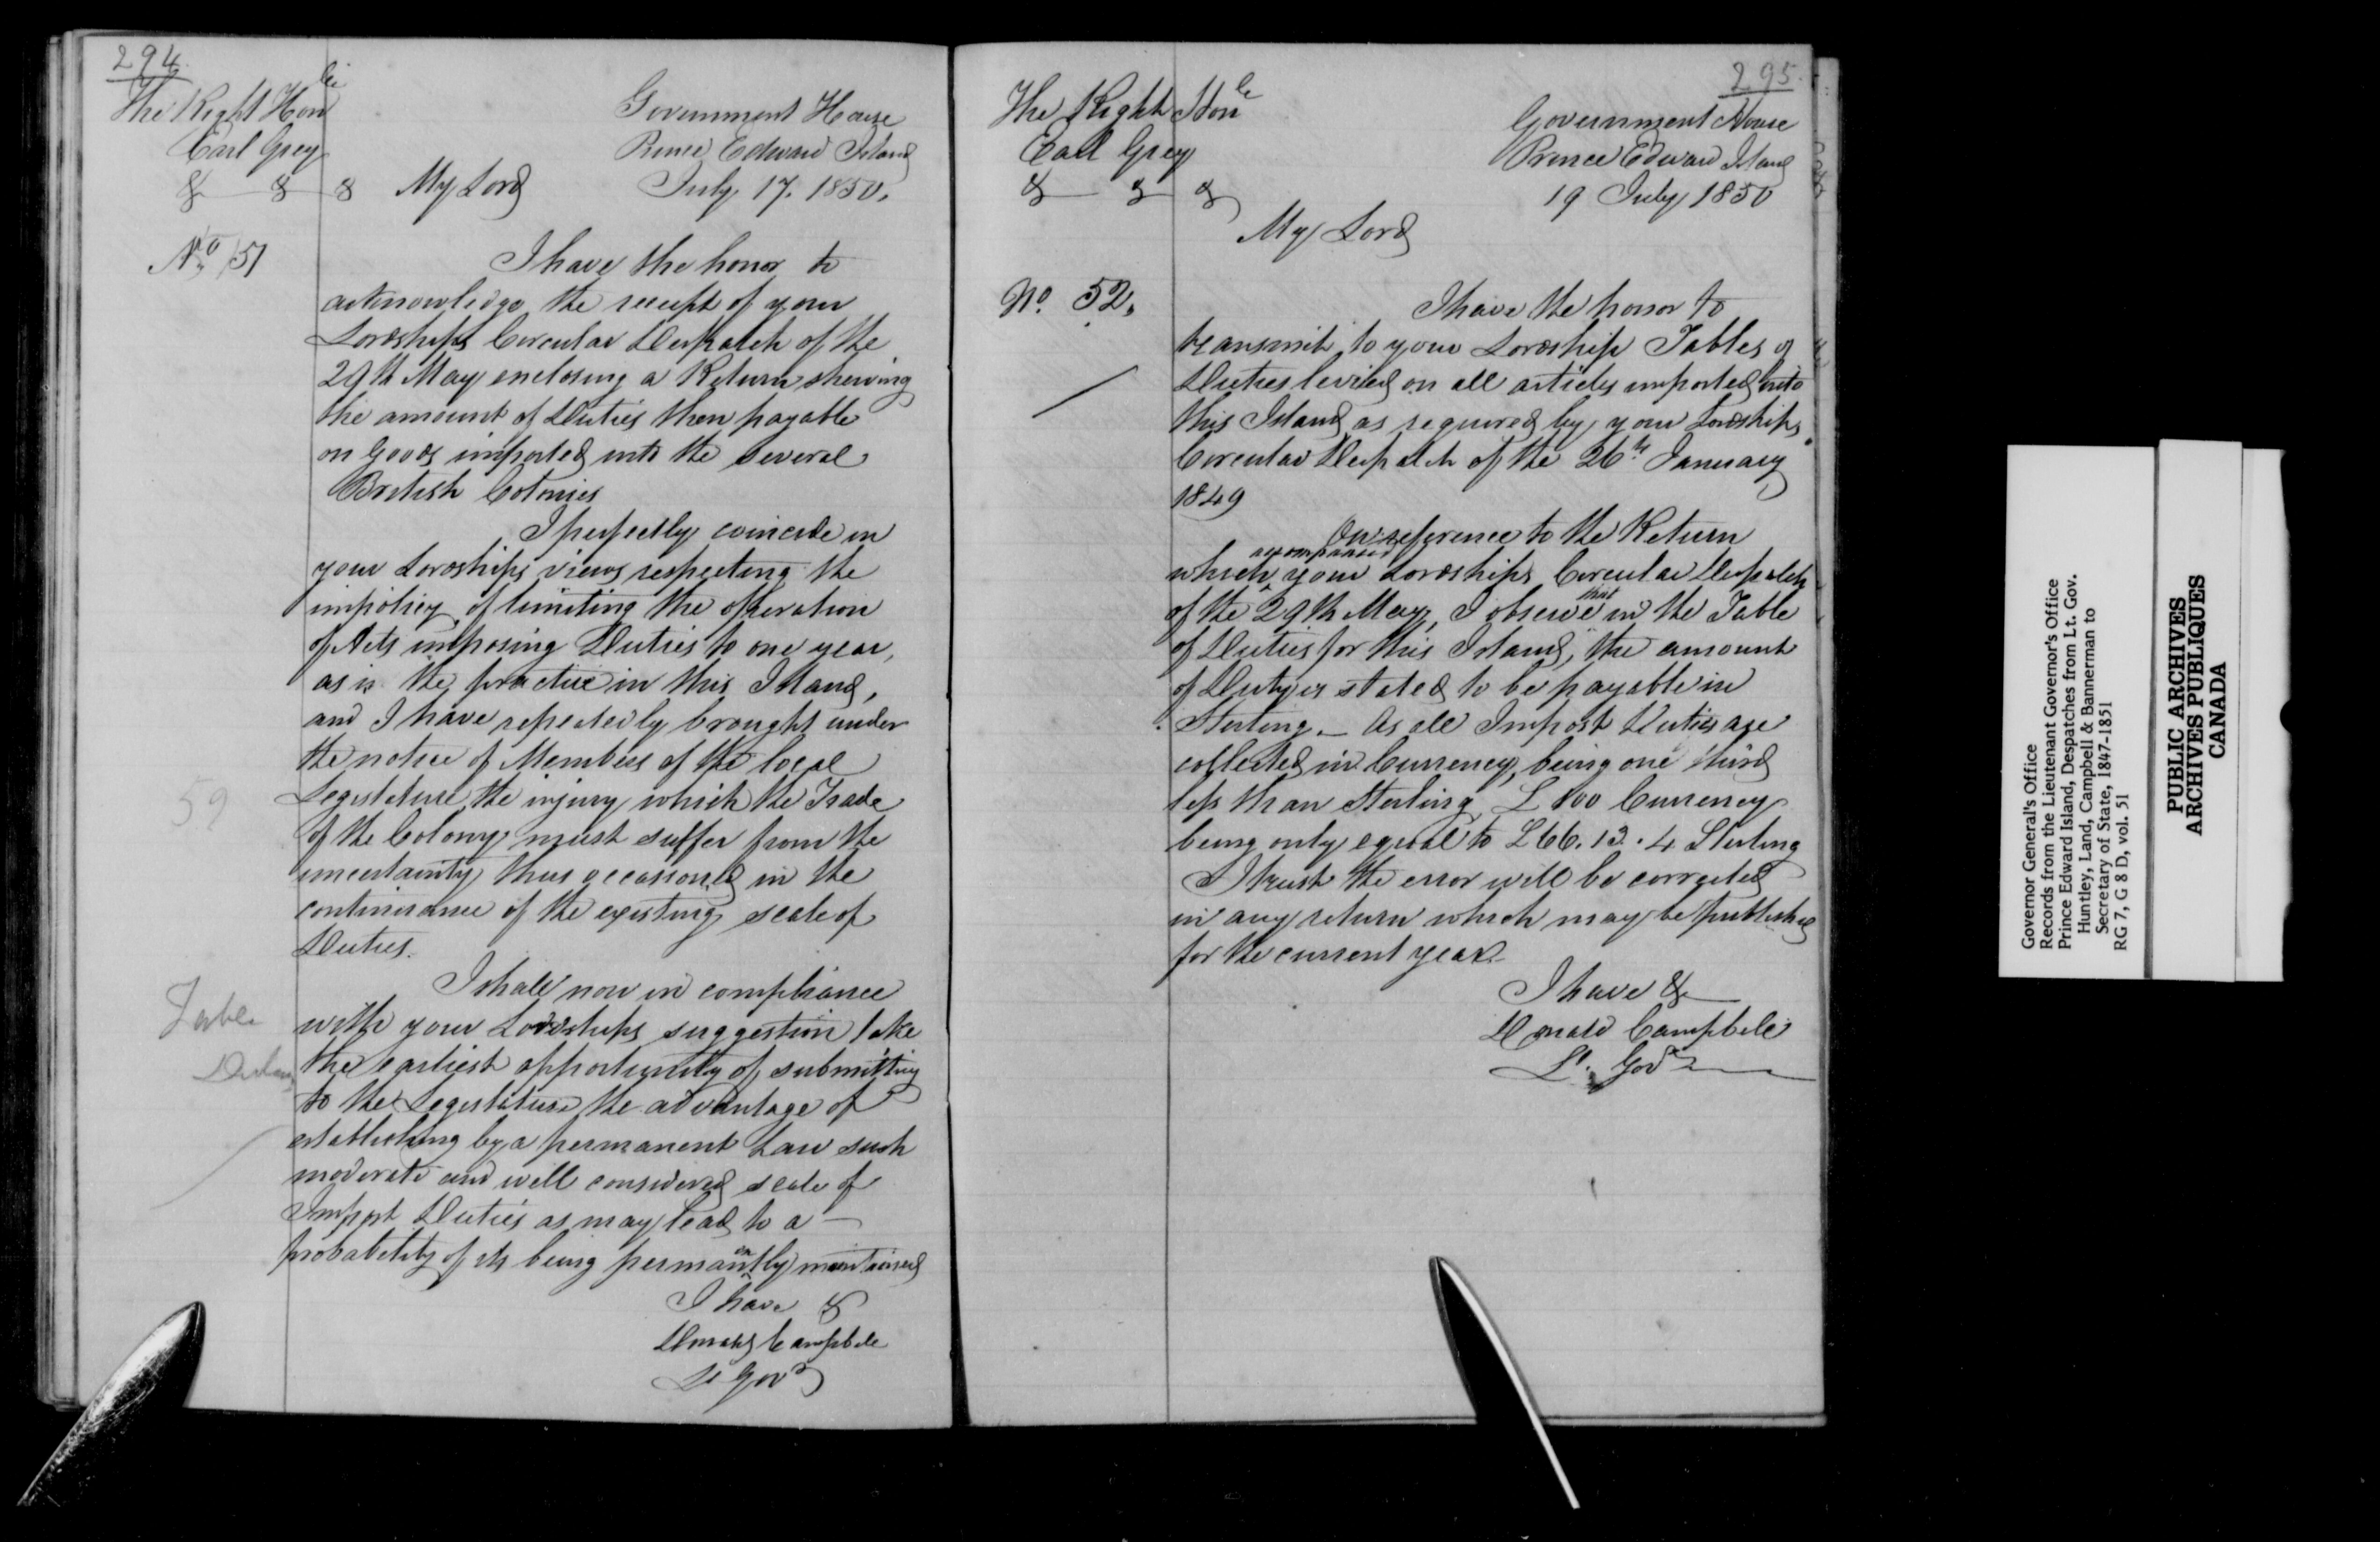 294
The Right Honble
Earl Grey
& & &
Government House
Prince Edward Island
July 17. 1850.
My Lord
No. 51
I have the honor to
acknowledge the receipt of your
Lordships Circular Despatch of the
29th May enclosing a Return shewing
the amount of Duties then payable
on Goods imported into the several
British Colonies
I perfectly coincide in
your Lordships views respecting the
impolicy of limiting the operation
of Acts imposing Duties to one year,
as is the practice in this Island,
and I have repeatedly brought under
the notice of Members of the local
Legislature the injury which the Trade
of the Colony must suffer from the
uncertainty thus occasioned in the
continuance of the existing scale of
Duties.
59
I shall now in compliance
with your Lordships suggestion take
the earliest opportunity of submitting
to the Legislature the advantage of
establishing by a permanent Law such
moderate and well considered scale of
Import Duties as may lead to a
probability of its being permanently maintained
Table
I have &
Donald Campbell
Lt Govr
295.
The Right Honle
Earl Grey
& & &
Government House
Prince Edward Island
19 July 1850
My Lord
No. 52.
I have the honor to
transmit to your Lordship Tables of
Duties levied on all articles imported into
this Island as required by your Lordships
Circular Despatch of the 26th January
1849
On reference to the Return
which accompanied your Lordships Circular Despatch
of the 29th May, I observe that in the Table
of Duties for this Island, the amount
of Duty is stated to be payable in
Sterling. _ As all Impost Duties are
collected in Currency, being one third
less than Sterling, £100 Currency
being only equal to £66.13.4 Sterling
I trust the error will be corrected
in any return which may be published
for the current year.
I have &
Donald Campbell
Lt. Govr
Governor General's Office
Records from the Lieutenant Governor's Office
Prince Edward Island, Despatches from Lt. Gov.
Huntley, Land, Campbell & Bannerman to
Secretary of State, 1847-1851
RG 7, G 8 D, vol. 51
PUBLIC ARCHIVES
ARCHIVES PUBLIQUES
CANADA